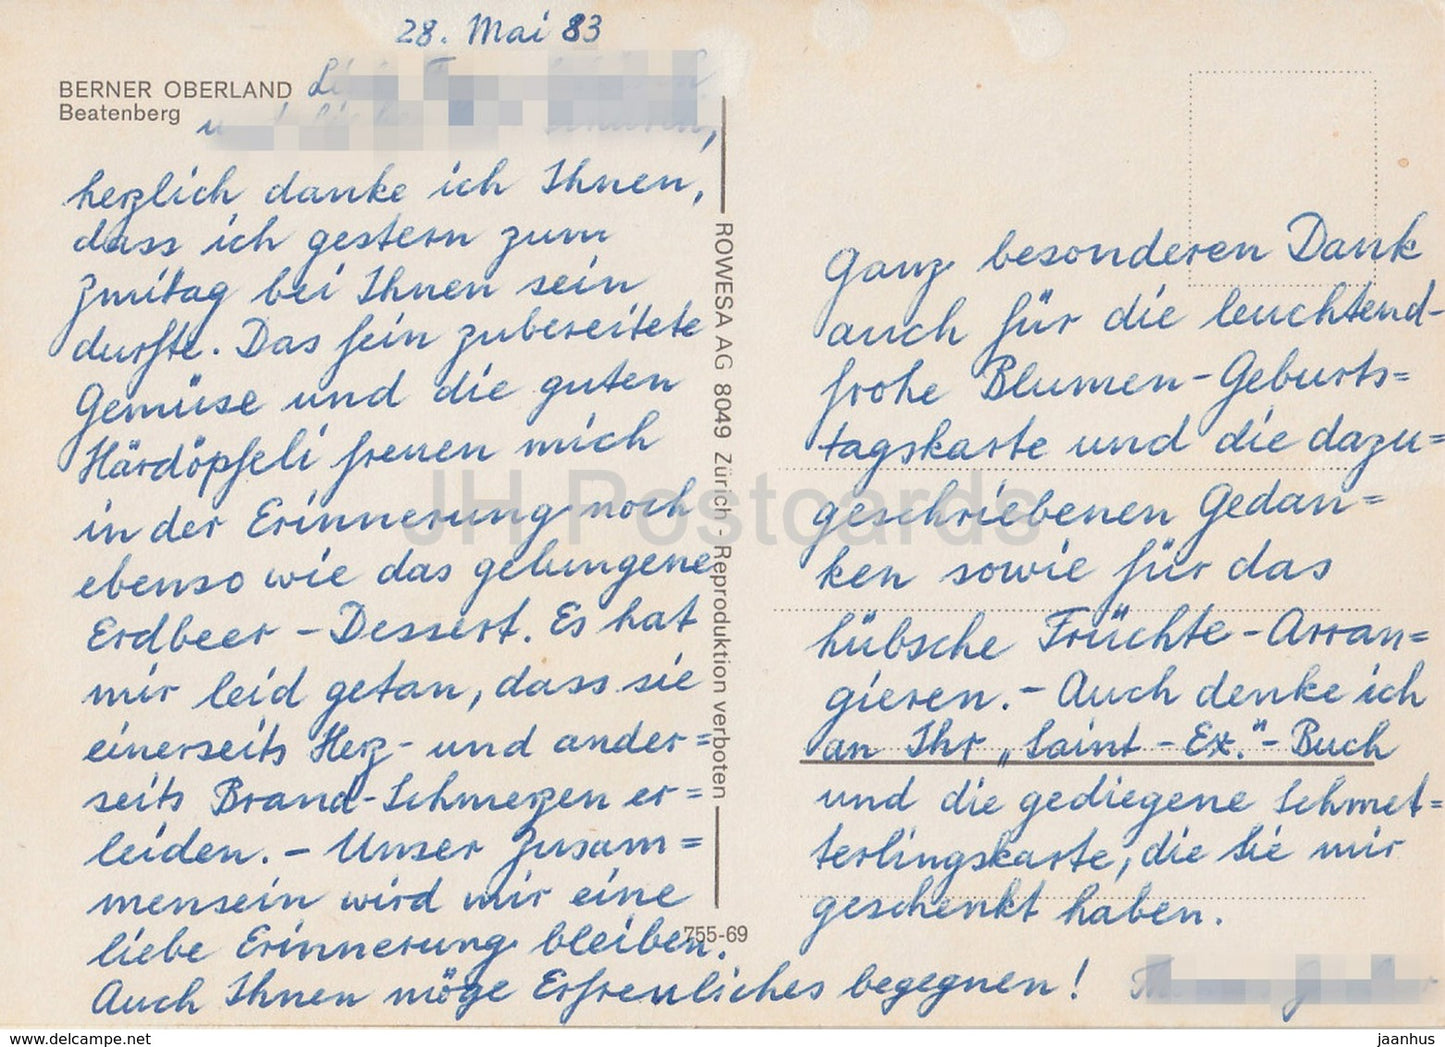 28. Mai 83
BERNER OBERLAND
Beatenberg
herzlich danke ich Ihnen,
dass ich gestern zum
Zmitag bei Ihnen sein
durfte. Das fein zubereitete
Gemüse und die guten
Härdöpfeli freuen mich
in der Erinnerung noch
ebenso wie das gelungene
Erdbeer-Dessert. Es hat
mir leid getan, dass sie
einerseits Herz- und ander=
seits Brand-Schmerzen er=
leiden. - Unser Zusam=
mensein wird mir eine
liebe Erinnerung bleiben.
Auch Ihnen möge Erfreuliches begegnen!
ROWESA AG 8049 Zürich - Reproduktion verboten
755-69
Ganz besonderen Dank
auch für die leuchtend-
frohe Blumen-Geburts=
tagskarte und die dazu=
geschriebenen Gedan=
ken sowie für das
hübsche Früchte-Arran=
gieren. - Auch denke ich
an Ihr „Saint-Ex."-Buch
und die gediegene Schmet=
terlingskarte, die Sie mir
geschenkt haben.
JH Postcards
www.delcampe.net
jaanhus